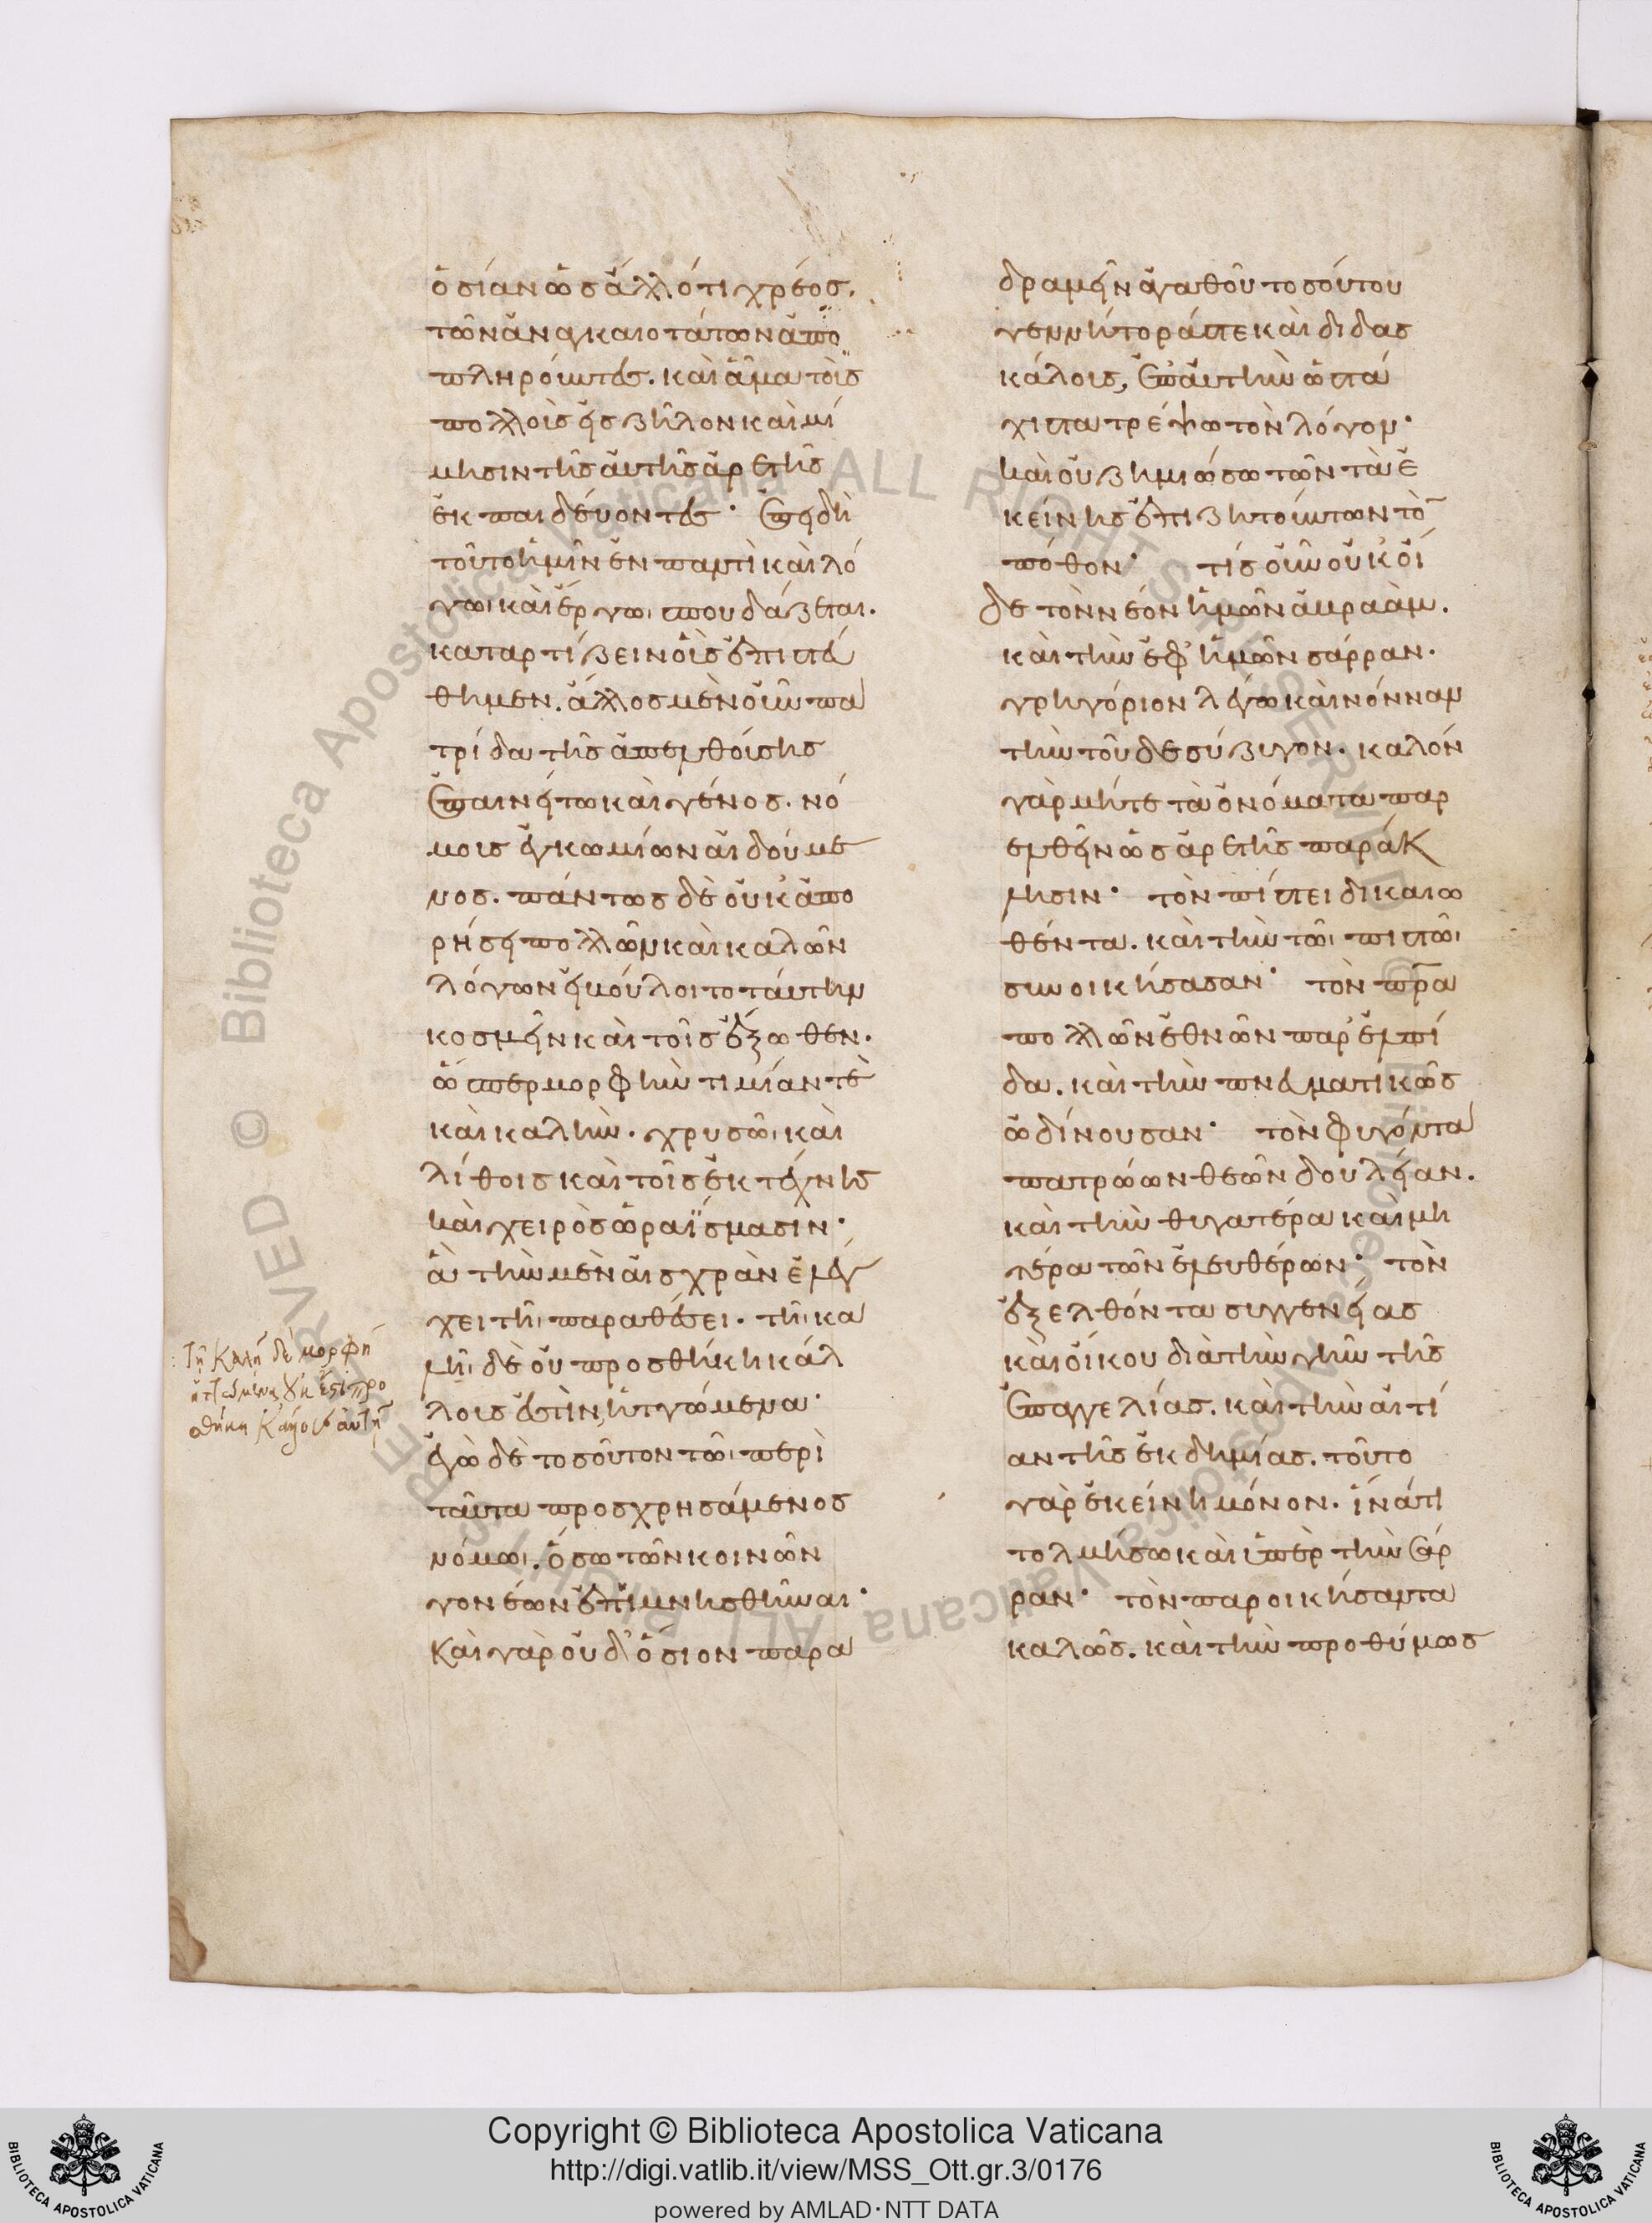 ὁσίαν ὡς ἄλλό τι χρέος.
τῶν ἀναγκαιοτάτων ἀπο
πληροῦντες. καὶ ἅμα τοῖς
πολλοῖς εἰς ζῆλον καὶ μί
μησιν τῆς αὐτῆς ἀρετῆς
ἐκπαιδεύοντες· ἐπεὶ δὴ
τοῦτο ἡμῖν ἐν παντὶ καὶ λό
γωι καὶ ἔργωι σπουδάζεται.
καταρτίζειν οἷς ἐπιστά
θημεν. ἄλλος μὲν οὖν πα
τρίδα τῆς ἀπελθούσης
ἐπαινείτω καὶ γένος. νό
μοις ἐγκωμίων αἰδούμε
νος. πάντως δὲ οὐκ ἀπο
ρήσει πολλῶν καὶ καλῶν
λόγων εἰ βούλοιτο ταύτην
κοσμεῖν καὶ τοῖς ἔξωθεν.
ὥσπερ μορφὴν τιμίαν τὲ
καὶ καλὴν. χρυσῶι καὶ
λίθοις καὶ τοῖς ἐκ τέχνης
καὶ χειρὸς ὡραΐσμασιν·
ἃ τὴν μὲν αἰσχρὰν ἐλέγ
χει τῆι παραθέσει. τῆι κα
λῆι δὲ οὐ προσθήκη κάλ
λους ἐστὶν ἡττώμενα·
ἐγὼ δὲ τοσοῦτον τῶι περὶ
ταῦτα προσχρησάμενος
νόμωι. ὅσω τῶν κοινῶν
γονέων ἐπιμνησθῆναι·
Καὶ γὰρ οὐδ' ὅσιον παρα
Τῇ καλῇ δὲ μορφῇ
θήκη κάλλους αὐτῇ
δραμεῖν ἀγαθοῦ τοσούτου
γεννήτοράς τε καὶ διδασ
κάλους, ἐπ' αὐτὴν ὡς τά
χιστα τρέψω τὸν λόγον·
καὶ οὐ ζημιώσω τῶν τὰ ἐ
κείνης ἐπιζητούντων τὸ(ν)
πόθον· τίς οὖν οὐκ οἶ
δε τὸν νέον ἡμῶν ἀβραάμ.
καὶ τὴν ἐφ' ἡμῶν σάρραν.
γρηγόριον λέγω καὶ νόνναν
τὴν τοῦδε σύζυγον. καλόν
γὰρ μήτε τὰ ὀνόματα παρ
ελθεῖν ὡς ἀρετῆς παράκ
λησιν· τὸν πίστει δικαιω
θέντα. καὶ τὴν τῶι πιστῶι
συνοικήσασαν· τὸν πρ̅α
πολλῶν ἐθνῶν παρ' ἐλπί
δα. καὶ τὴν πνευματικῶς
ὠδίνουσαν· τὸν φυγόντα
πατρώων θεῶν δουλείαν.
καὶ τὴν θυγατέρα καὶ μη
τέρα τῶν ἐλευθέρων· τὸν
ἐξελθόντα συγγενείας
καὶ οἴκου διὰ τὴν γῆν τῆς
ἐπαγγελίας. καὶ τὴν αἰτί
αν τῆς ἐκδημίας. τοῦτο
γὰρ ἐκείνη μόνον. ἵνά τι
τολμήσω καὶ ὑπὲρ τὴν σάρ
ραν· τὸν παροικήσαντα
καλῶς. καὶ τὴν προθύμως
Biblioteca Apostolica Vaticana ALL RIGHTS RESERVED ©
Copyright © Biblioteca Apostolica Vaticana
http://digi.vatlib.it/view/MSS_Ott.gr.3/0176
powered by AMLAD·NTT DATA
BIBLIOTECA APOSTOLICA VATICANA
BIBLIOTECA APOSTOLICA VATICANA